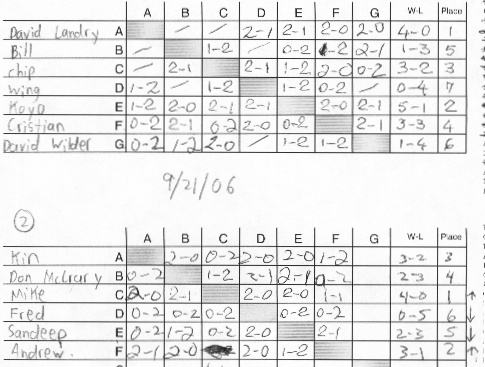 A B C D E F G W-L Place
David Landry A / / 2-1 2-1 2-0 2-0 4-0 1
Bill B / 1-2 / 0-2 1-2 2-1 1-3 5
chip C / 2-1 2-1 1-2 2-0 0-2 3-2 3
Wing D 1-2 / 1-2 1-2 0-2 / 0-4 7
Koyo E 1-2 2-0 2-1 2-1 2-0 2-1 5-1 2
Cristian F 0-2 2-1 0-2 2-0 0-2 2-1 3-3 4
David Wilder G 0-2 1-2 2-0 / 1-2 1-2 1-4 6
9/21/06
2
A B C D E F G W-L Place
Kin A 2-0 0-2 2-0 2-0 1-2 3-2 3
Don McCrary B 0-2 1-2 2-1 2-1 0-2 2-3 4
Mike C 2-0 2-1 2-0 2-0 1-1 4-0 1 ↑
Fred D 0-2 0-2 0-2 0-2 0-2 0-5 6 ↓
Sandeep E 0-2 1-2 0-2 2-0 2-1 2-3 5 ↓
Andrew. F 2-1 2-0 2-0 1-2 3-1 2 ↑